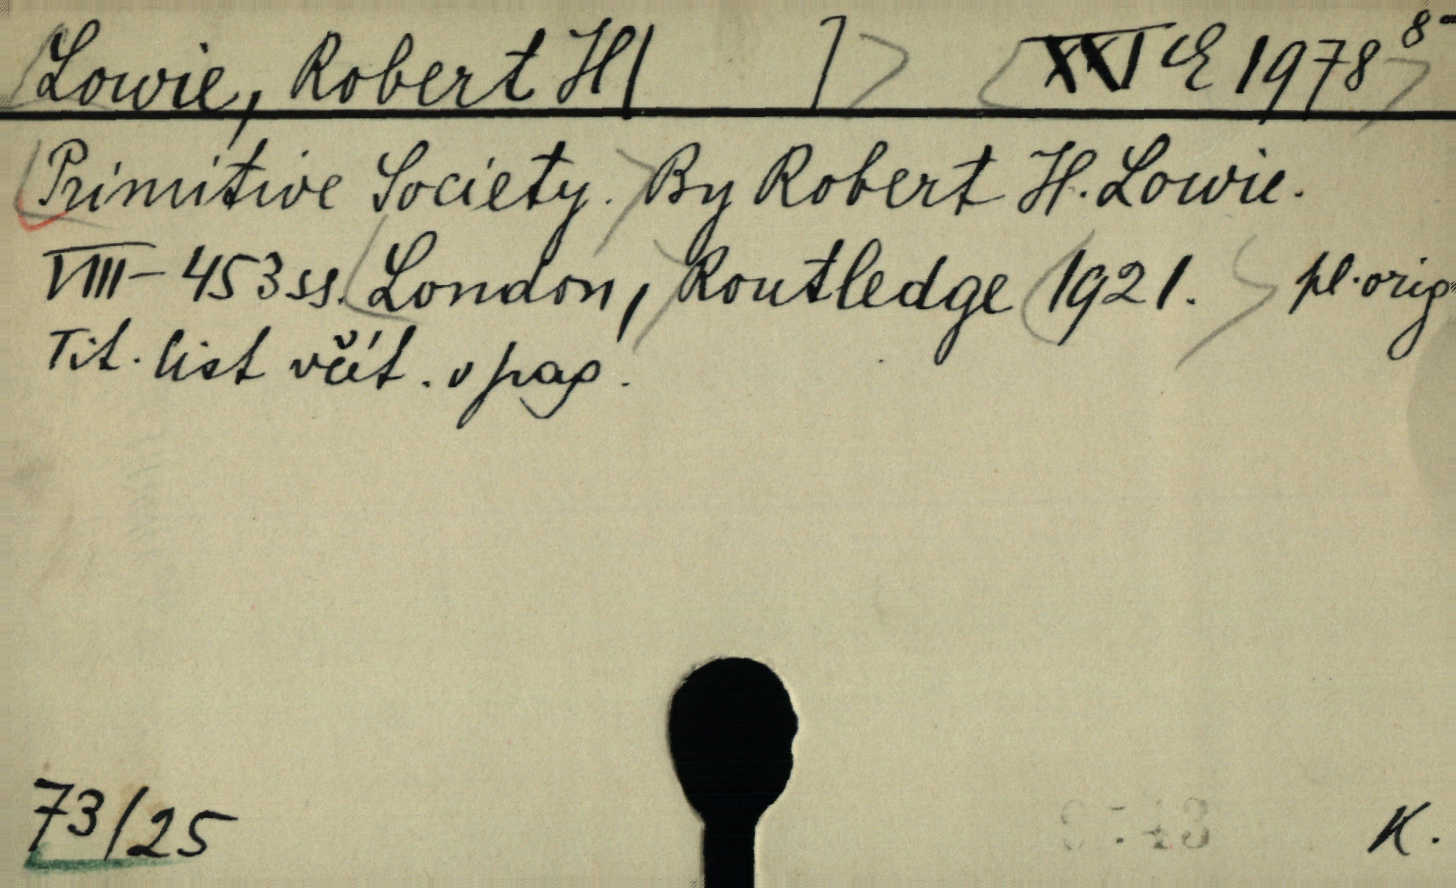 Lowie, Robert H] ] XXI E 1978 8-
Primitive Society. By Robert H. Lowie.
VIII – 453 ss. London, Routledge 1921. pl. orig
Tit. list včít. v pag.
73/25
K.